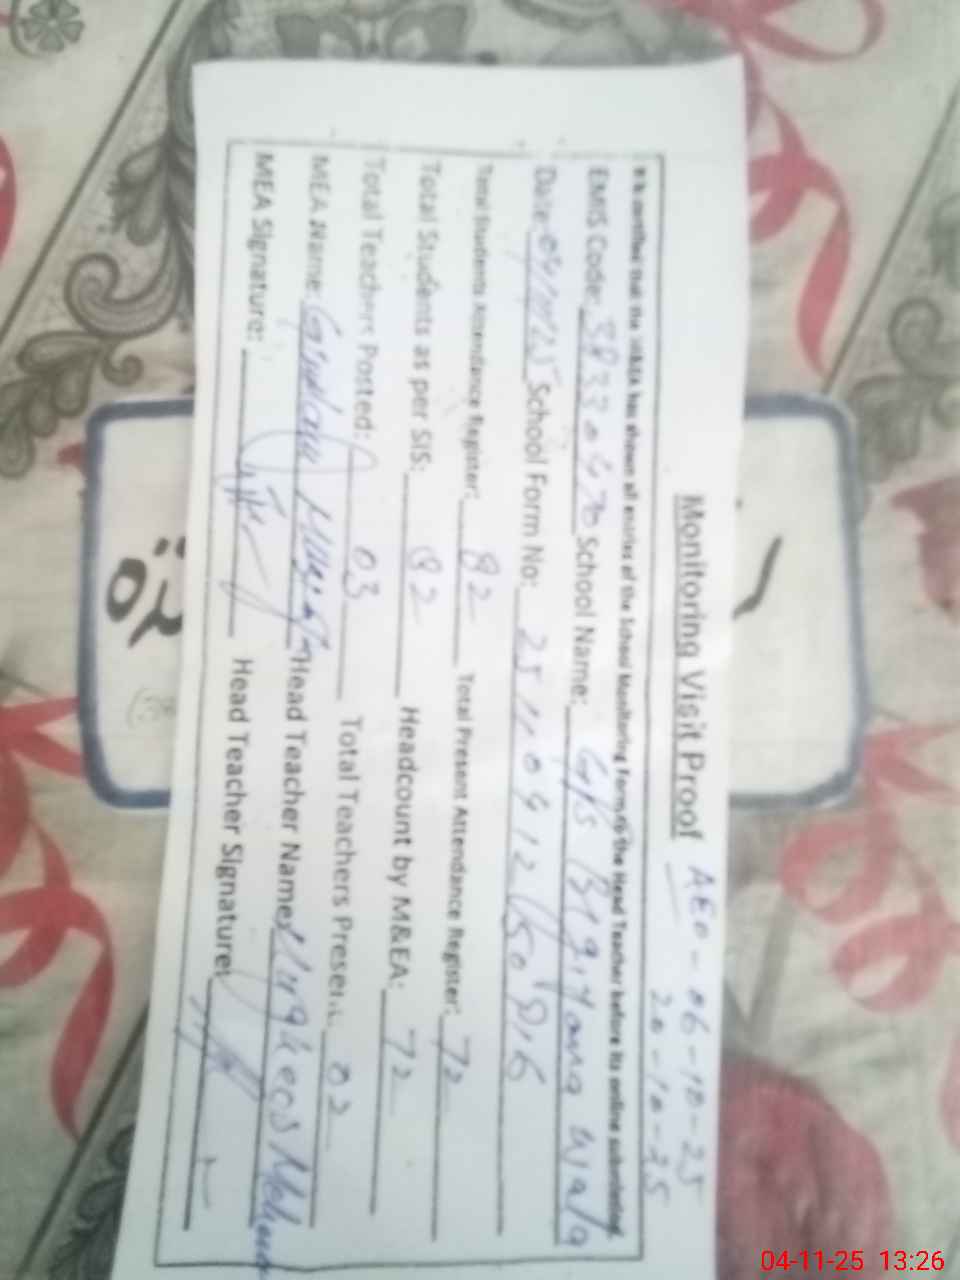 Monitoring Visit Proof AEO - 06-10-25
20-10-25
It is certified that the M&EA has shown all entries of the School Monitoring Form to the Head Teacher before its online submission.
EMIS Code: 38330470 School Name: GPS
Date: 04/11/25 School Form No:
Total Students Attendance Register: 82 Total Present Attendance Register: 72
Total Students as per SIS: 82 Headcount by M&EA: 72
Total Teachers Posted: 03 Total Teachers Present: 02
MEA Name: Head Teacher Name:
MEA Signature: Head Teacher Signature:
04-11-25 13:26